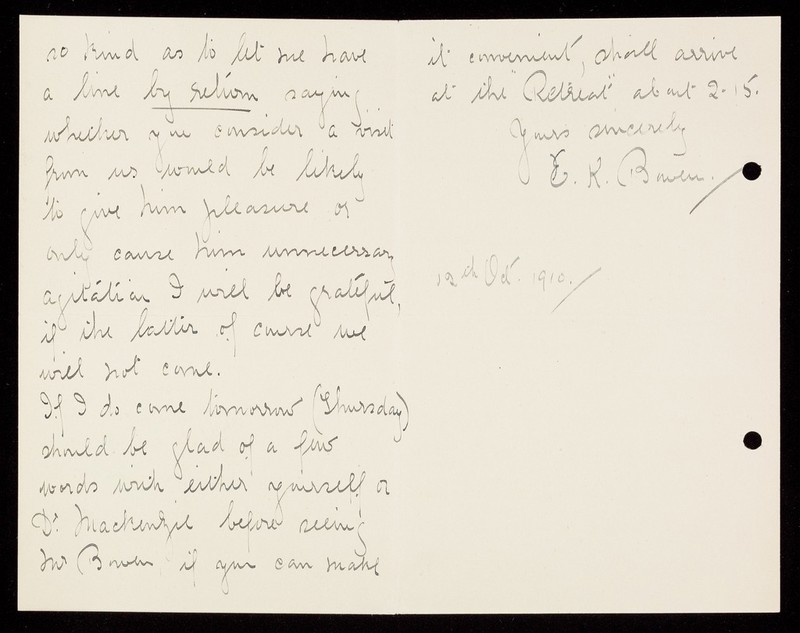 so kind as to let me have
a line by return saying
whether you consider a visit
from us would be likely
to give him pleasure or
only cause him unnecessary
agitation I will be grateful,
if the latter of course we
will not come.
If I do come tomorrow (Thursday)
should be glad of a few
words with either yourself or
Dr Mackenzie before seeing
Mr Bowen, if you can make
it convenient, shall arrive
at the "Retreat" about 2-15.
Yours sincerely
E. K. Bowen.
12th Oct. 1910.